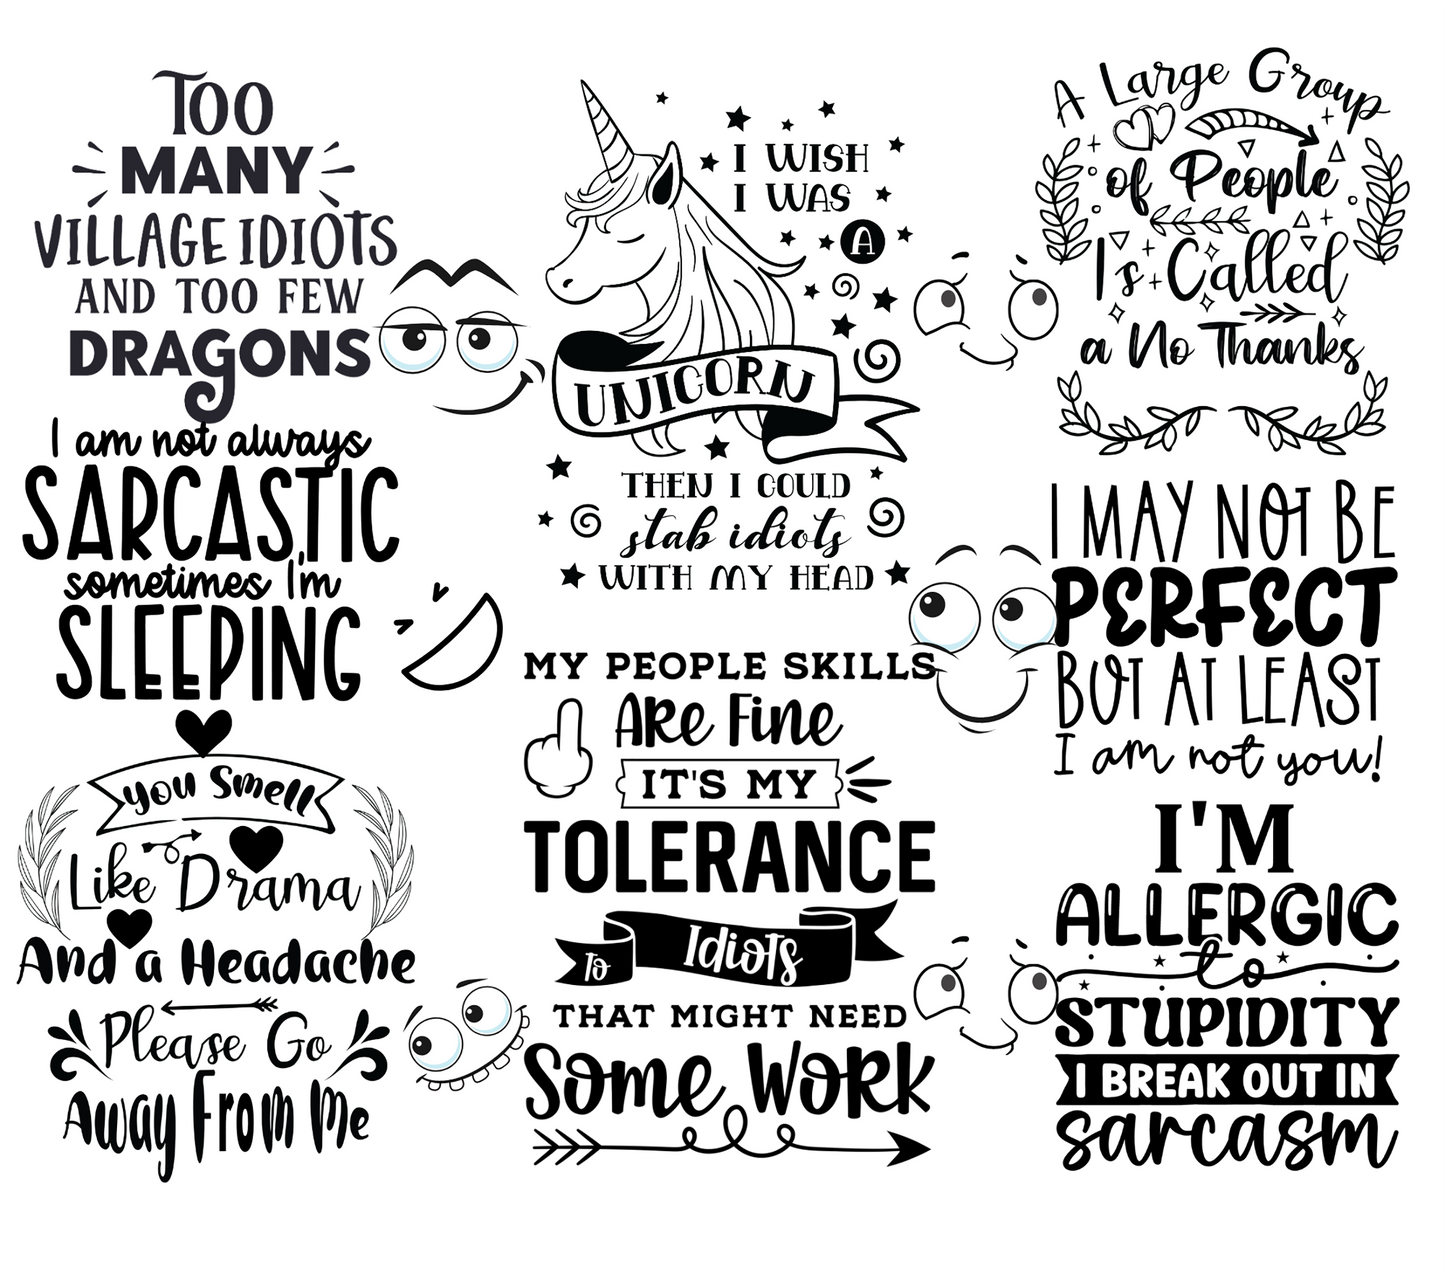 Too
MANY
VILLAGE IDIOTS
AND TOO FEW
DRAGONS
I am not always
SARCASTIC
sometimes I'm
SLEEPING
you Smell
Like Drama
And a Headache
Please Go
Away From Me
I WISH
I WAS
A
UNICORN
THEN I COULD
stab idiots
WITH MY HEAD
MY PEOPLE SKILLS
Are Fine
IT'S MY
TOLERANCE
To Idiots
THAT MIGHT NEED
Some Work
A Large Group
of People
Is Called
a No Thanks
I MAY NOT BE
PERFECT
BUT AT LEAST
I am not you!
I'M
ALLERGIC
to
STUPIDITY
I BREAK OUT IN
sarcasm